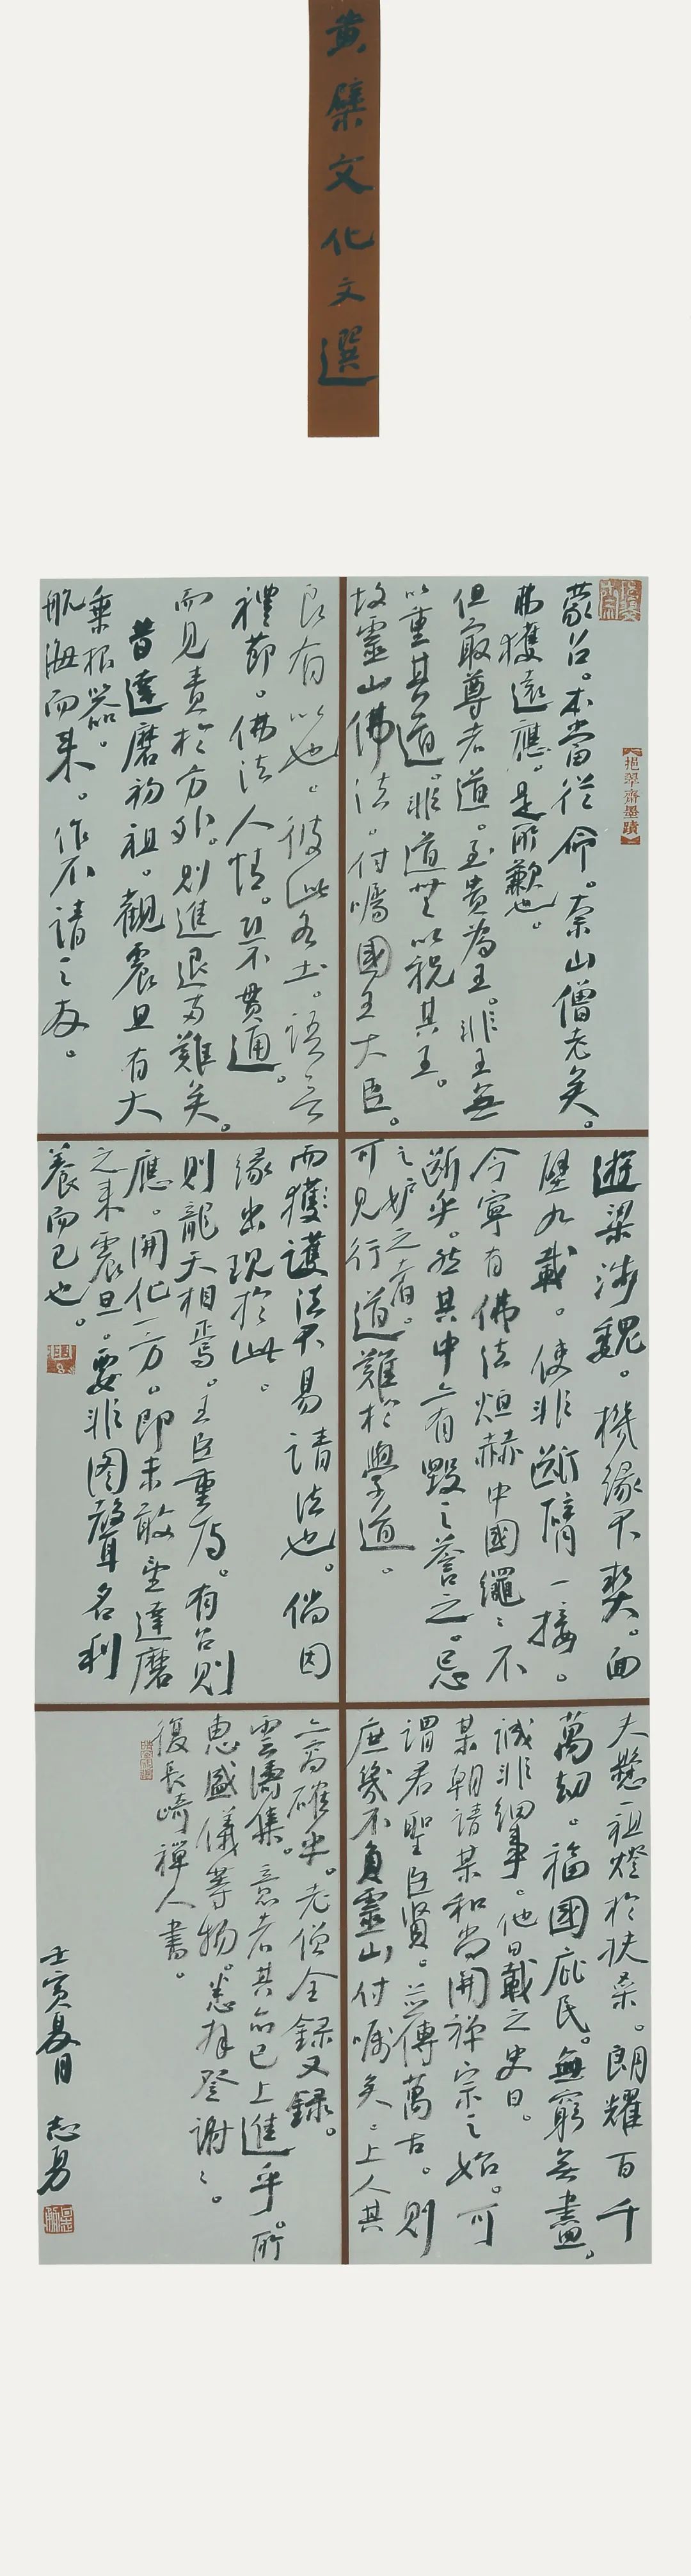 黃檗文化文選
【挹翠齋墨蹟】
蒙召。本當從命。奈山僧老矣。
弗獲遠應。是所歉也。
但最尊者道。至貴為王。非王無
以重其道。非道無以祝其王。
故靈山佛法。付囑國王大臣。
良有以也。彼此各土。語言
禮節。佛法人情。恐不貫通。
而見責於方外。則進退両難矣。
昔達磨初祖。觀震旦有大
乘根器。
航海而来。作不請之友。
遊梁涉魏。機緣不契。面
壁九載。使非斷臂一接。
今寧有佛法烜赫中國繩〻不
斷乎。然其中亦有毀之譽之。忌
之妒之者。
可見行道難於學道。
而獲護法不易請法也。倘因
緣出現於此。
則龍天相焉。王臣重焉。有召則
應。開化一方。即未敢望達磨
之来震旦。要非圖聲名利
養而已也。
夫懸祖燈於扶桑。朗耀百千
萬劫。福國庇民。無窮無盡。
誠非細事。他日載之史曰。
某朝請某和尚開禪宗之始。可
謂君聖臣賢。並傳萬古。則
庶幾不負靈山付囑矣。上人其
亦為確乎。老僧全録又録。
雲濤集。意者其命已上進乎。所
惠盛儀等物。悉拜登謝〻。
復長崎禪人書。
壬寅夏月 志勇